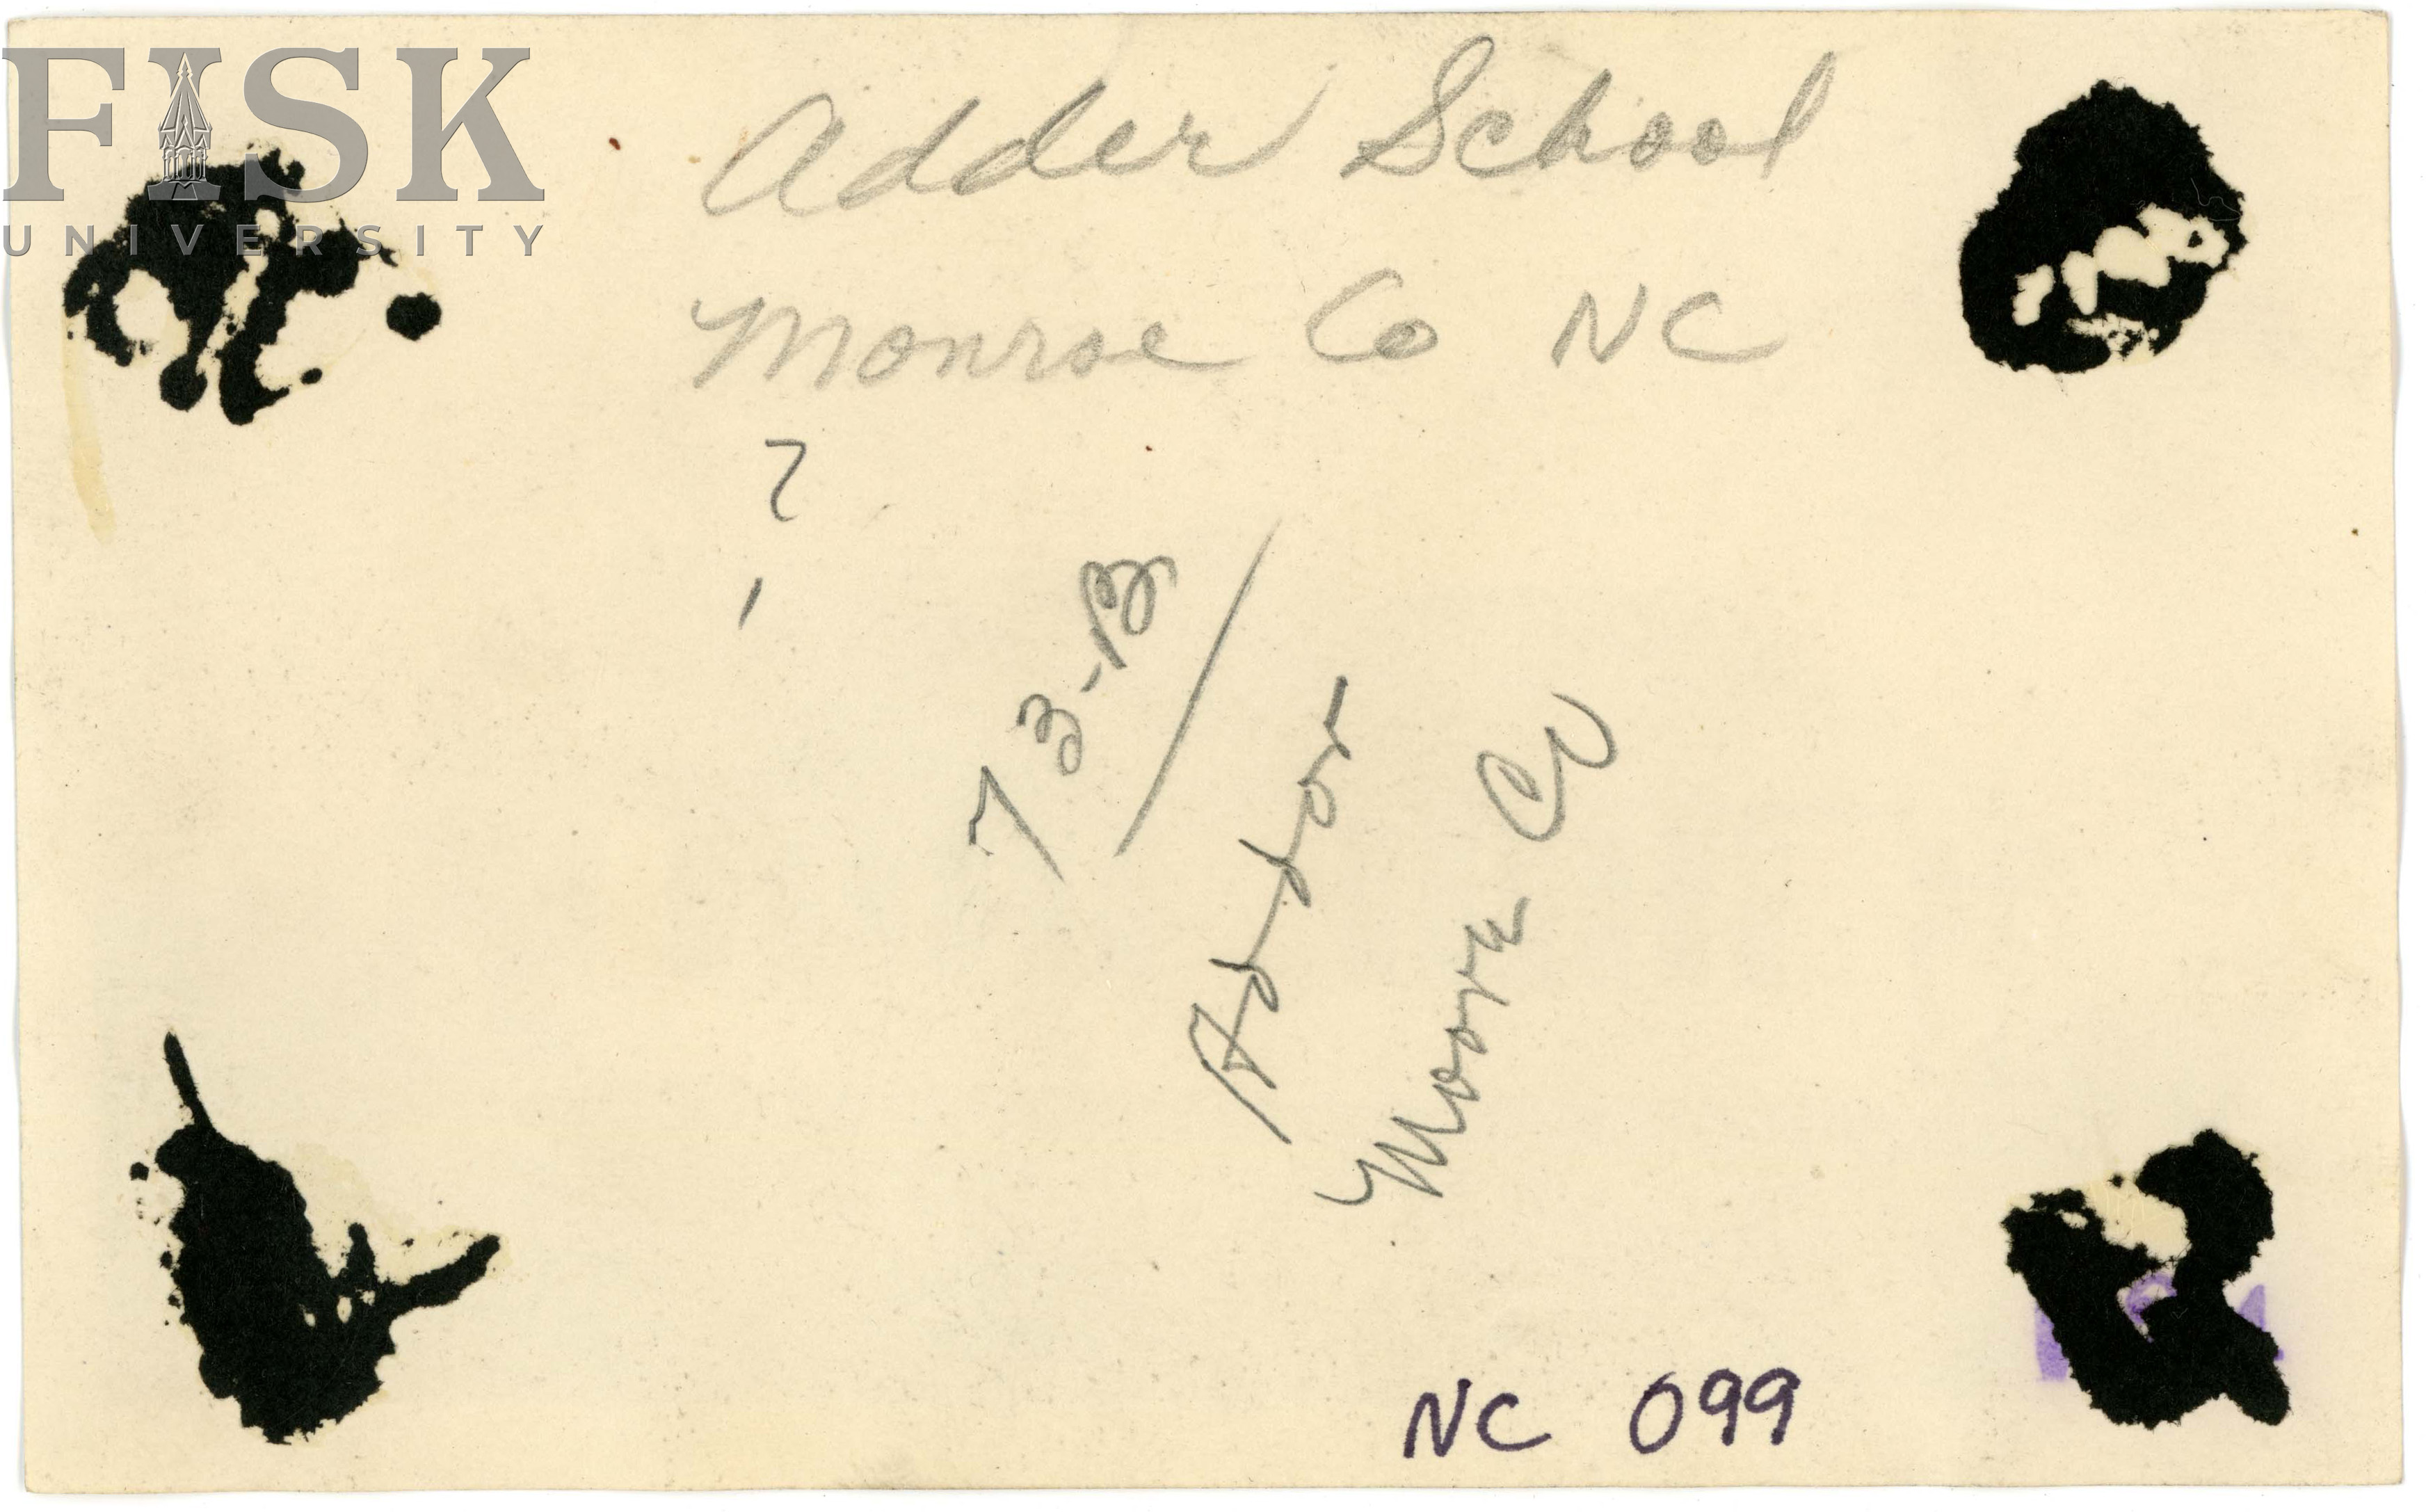 FISK
UNIVERSITY
Adder School
Monroe Co NC
?
73-B
Addor
Moore Co
NC 099